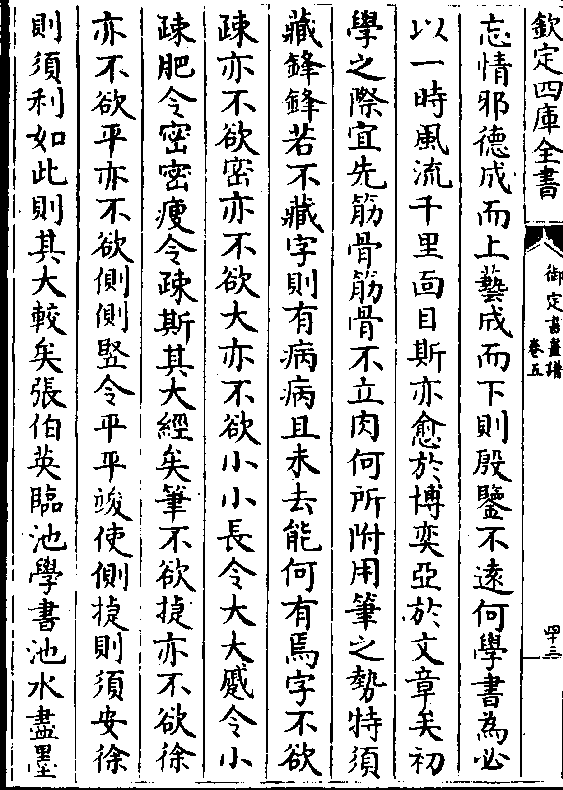 欽定四庫全書
御定書畫譜
卷五
四十三
忘情邪德成而上藝成而下則殷鑒不遠何學書為必
以一時風流千里面目斯亦愈於博奕亞於文章矣初
學之際宜先筋骨筋骨不立肉何所附用筆之勢特須
藏鋒鋒若不藏字則有病病且未去能何有焉字不欲
疎亦不欲密亦不欲大亦不欲小小長令大大蹙令小
疎肥令密密瘦令疎斯其大經矣筆不欲捷亦不欲徐
亦不欲平亦不欲側側竪令平平竣使側捷則須安徐
則須利如此則其大較矣張伯英臨池學書池水盡墨